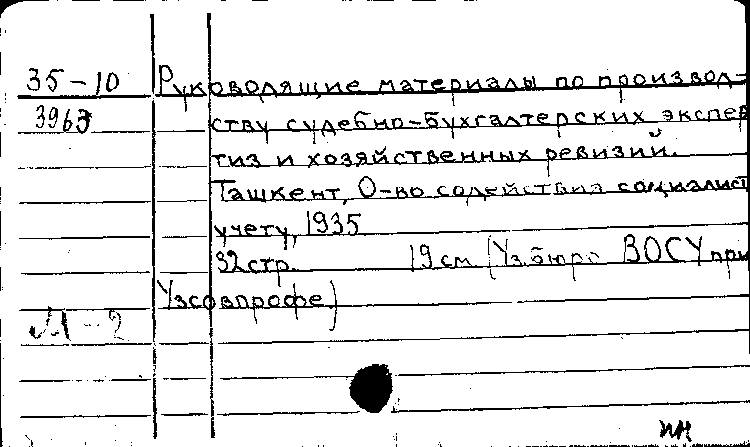 35-10 Руководящие материалы по производ-
3963 ству судебно-бухгалтерских экспер
тиз и хозяйственных ревизий.
Ташкент, О-во содействия социалист
учету, 1935
32стр. 19 см (Уз.бюро ВОСУ при
Узсовпрофе)
М-2